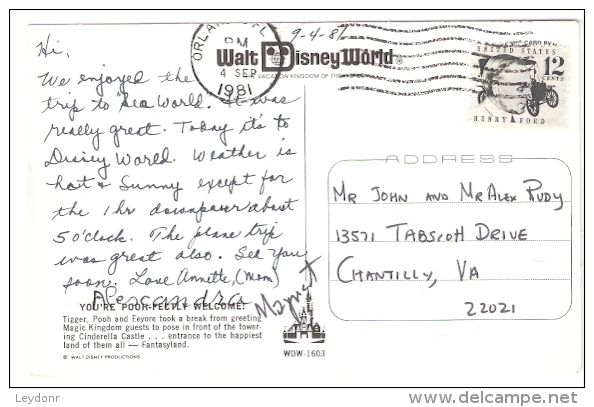 9-4-81
ORLANDO FL
PM
4 SEP
1981
Walt Disney World®
VACATION KINGDOM OF THE
UNITED STATES
12
CENTS
HENRY FORD
Hi,
We enjoyed the
trip to Sea World. It was
really great. Today it's to
Disney World. Weather is
hot & Sunny except for
the 1 hr downpour about
5 o'clock. The plane trip
was great also. See you
soon. Love Annette, (Mom)
Alexandra
Margaret
ADDRESS
MR JOHN AND MR ALEX RUDY
13571 TABSCOTT DRIVE
CHANTILLY, VA
22021
YOU'RE POOH-FECTLY WELCOME!
Tigger, Pooh and Eeyore took a break from greeting
Magic Kingdom guests to pose in front of the tower-
ing Cinderella Castle . . . entrance to the happiest
land of them all — Fantasyland.
© WALT DISNEY PRODUCTIONS
WDW-1603
Leydonr
delcampe.net